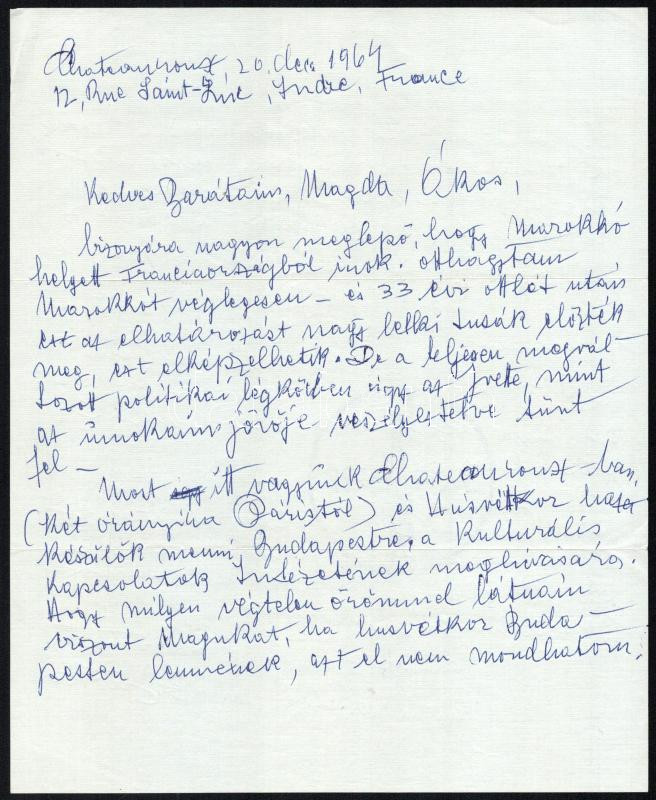 Chateauroux, 20. dec. 1964
12, Rue Saint-Luc, Indre, France
Kedves Barátaim, Magda, Ákos,
bizonyára nagyon meglepő, hogy Marokkó
helyett Franciaországból irok. Otthagytam
Marokkót véglegesen – és 33 évi ottlét után
ezt az elhatározást nagy lelki tusák előzték
meg, ezt elképzelhetik. De a teljesen megvál-
tozott politikai légkörben úgy az Ivette, mint
az unokáim jövője veszélyeztetve tünt
fel –
Most itt vagyunk Chateauroux-ban,
(két órányira Páristól) és Húsvétkor haza
készülök menni, Budapestre, a Kulturális
Kapcsolatok Intézetének meghivására.
Hogy milyen végtelen örömmel látnám
viszont Magukat, ha husvétkor Buda-
pesten lennének, azt el nem mondhatom.